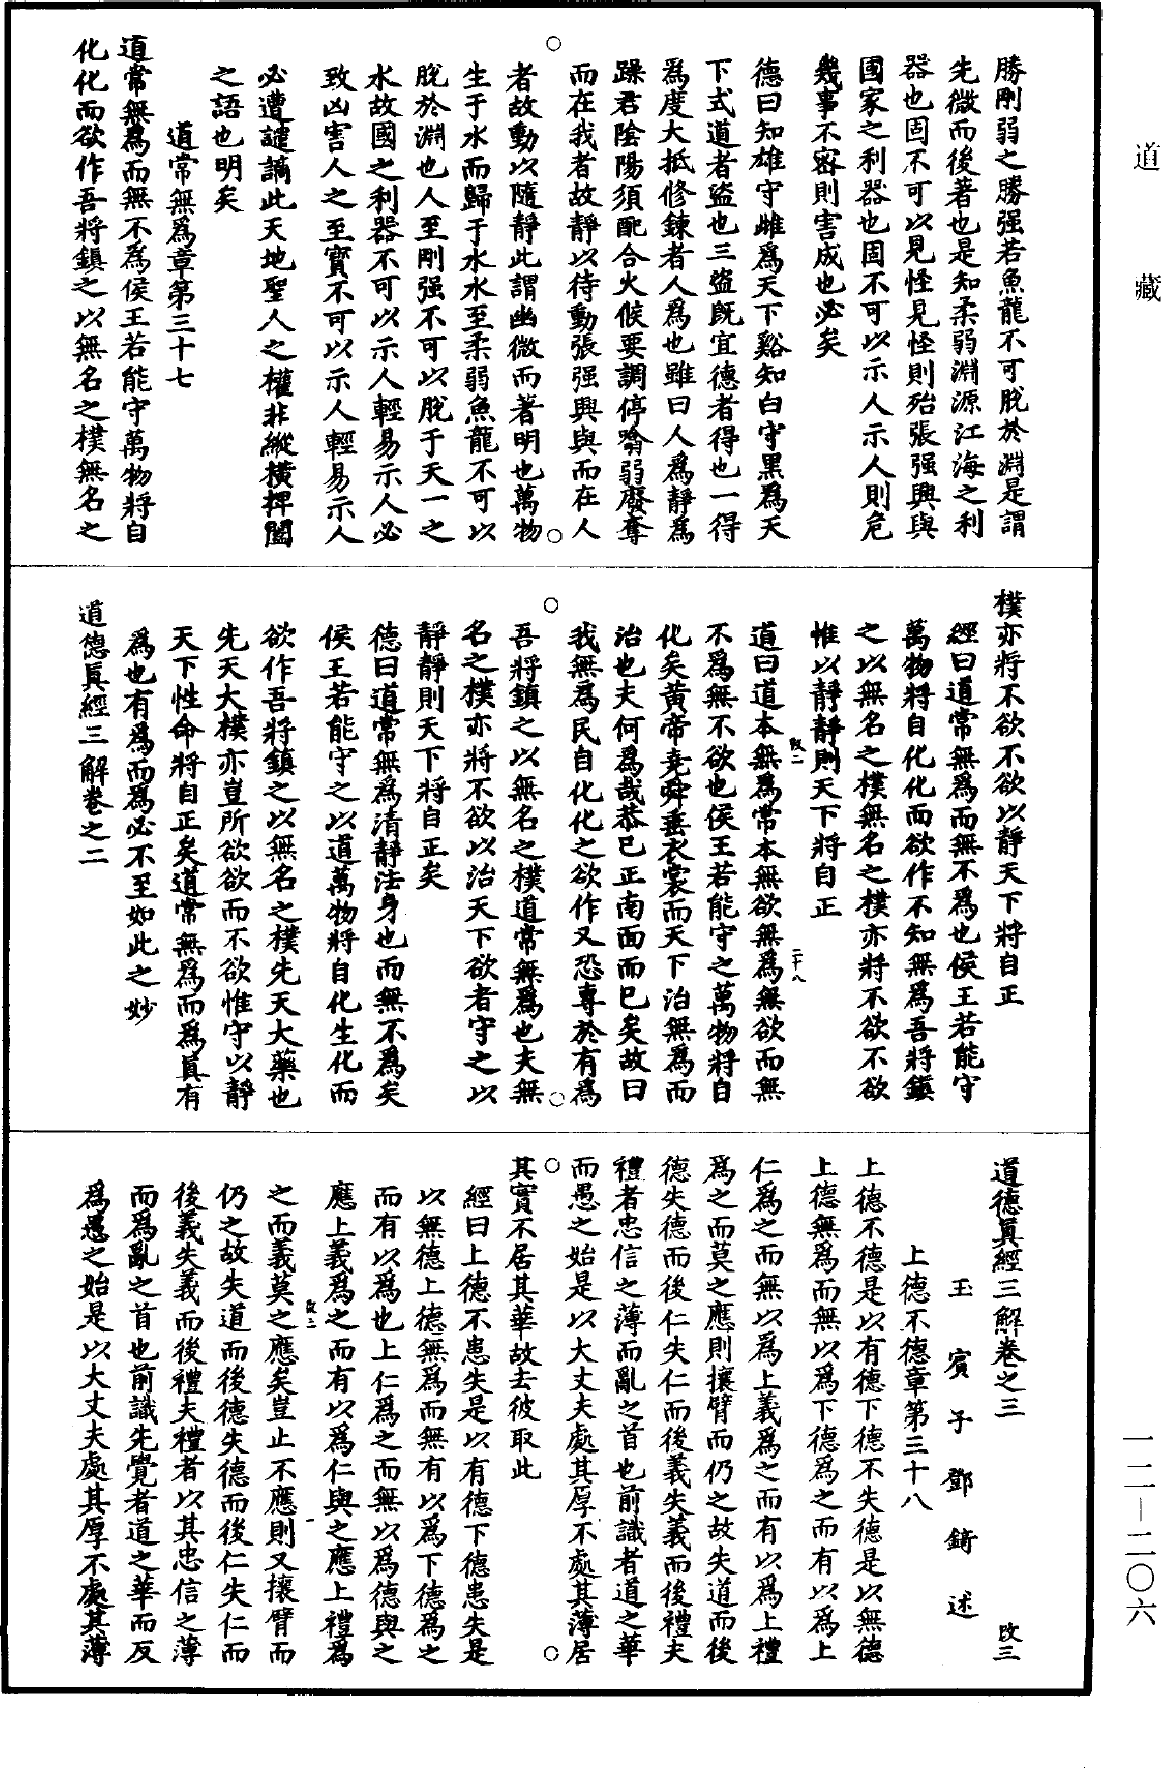 道藏
一二—二〇六
勝剛弱之勝强若魚龍不可脫於淵是謂
先微而後著也是知柔弱淵源江海之利
器也固不可以見怪見怪則殆張强興與
國家之利器也固不可以示人示人則危
幾事不密則害成也必矣
德曰知雄守雌爲天下谿知白守黑爲天
下式道者盜也三盜旣宜德者得也一得
爲度大抵修鍊者人爲也雖曰人爲靜爲
躁君陰陽須配合火候要調停噏弱廢奪
而在我者故靜以待動張强興與而在人
者故動以隨靜此謂幽微而著明也萬物
生于水而歸于水水至柔弱魚龍不可以
脫於淵也人至剛强不可以脫于天一之
水故國之利器不可以示人輕易示人必
致凶害人之至寳不可以示人輕易示人
必遭譴謫此天地聖人之權非縱橫捭闔
之語也明矣
道常無爲章第三十七
道常無爲而無不爲侯王若能守萬物將自
化化而欲作吾將鎮之以無名之樸無名之
樸亦將不欲不欲以靜天下將自正
經曰道常無爲而無不爲也侯王若能守
萬物將自化化而欲作不知無爲吾將鎮
之以無名之樸無名之樸亦將不欲不欲
惟以靜靜則天下將自正
改二 二十八
道曰道本無爲常本無欲無爲無欲而無
不爲無不欲也侯王若能守之萬物將自
化矣黃帝堯舜垂衣裳而天下治無爲而
治也夫何爲哉恭已正南面而已矣故曰
我無爲民自化化之欲作又恐專於有爲
吾將鎮之以無名之樸道常無爲也夫無
名之樸亦將不欲以治天下欲者守之以
靜靜則天下將自正矣
德曰道常無爲清靜法身也而無不爲矣
侯王若能守之以道萬物將自化生化而
欲作吾將鎮之以無名之樸先天大藥也
先天大樸亦豈所欲欲而不欲惟守以靜
天下性命將自正矣道常無爲而爲眞有
爲也有爲而爲必不至如此之妙
道德眞經三解卷之二
道德眞經三解卷之三 改三
玉賓子鄧錡述
上德不德章第三十八
上德不德是以有德下德不失德是以無德
上德無爲而無以爲下德爲之而有以爲上
仁爲之而無以爲上義爲之而有以爲上禮
爲之而莫之應則攘臂而仍之故失道而後
德失德而後仁失仁而後義失義而後禮夫
禮者忠信之薄而亂之首也前識者道之華
而愚之始是以大丈夫處其厚不處其薄居
其實不居其華故去彼取此
經曰上德不患失是以有德下德患失是
以無德上德無爲而無有以爲下德爲之
而有以爲也上仁爲之而無以爲德與之
應上義爲之而有以爲仁與之應上禮爲
改三 一
之而義莫之應矣豈止不應則又攘臂而
仍之故失道而後德失德而後仁失仁而
後義失義而後禮夫禮者以其忠信之薄
而爲亂之首也前識先覺者道之華而反
爲愚之始是以大丈夫處其厚不處其薄